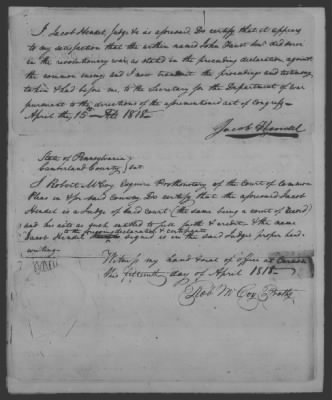 I Jacob Hendel, Judge &c as aforesaid Do certify that it appears
to my satisfaction that the within named John Faust did serve
in the revolutionary war as stated in the preceding declaration against
the common enemy and I now transmit the proceedings and testimony
taken & had before me, to the Secretary for the Department of War
pursuant to the directions of the aforementioned act of Congress
April the 15th 1818
Jacob Hendel
State of Pennsylvania
Cumberland County sst
I Robert McCoy Esquire Prothonotary of the Court of Common
Pleas in & for said County Do certify, that the aforesaid Jacob
Hendel is a Judge of said court (the same being a court of record)
and his acts as such entitled to full faith & credit & the name
to the foregoing declaration & certificate
Jacob Hendel signed is in the said Judges proper hand
writing
Witness my hand & seal of office at Carlisle
this fifteenth day of April 1818
Rob McCoy Prothy